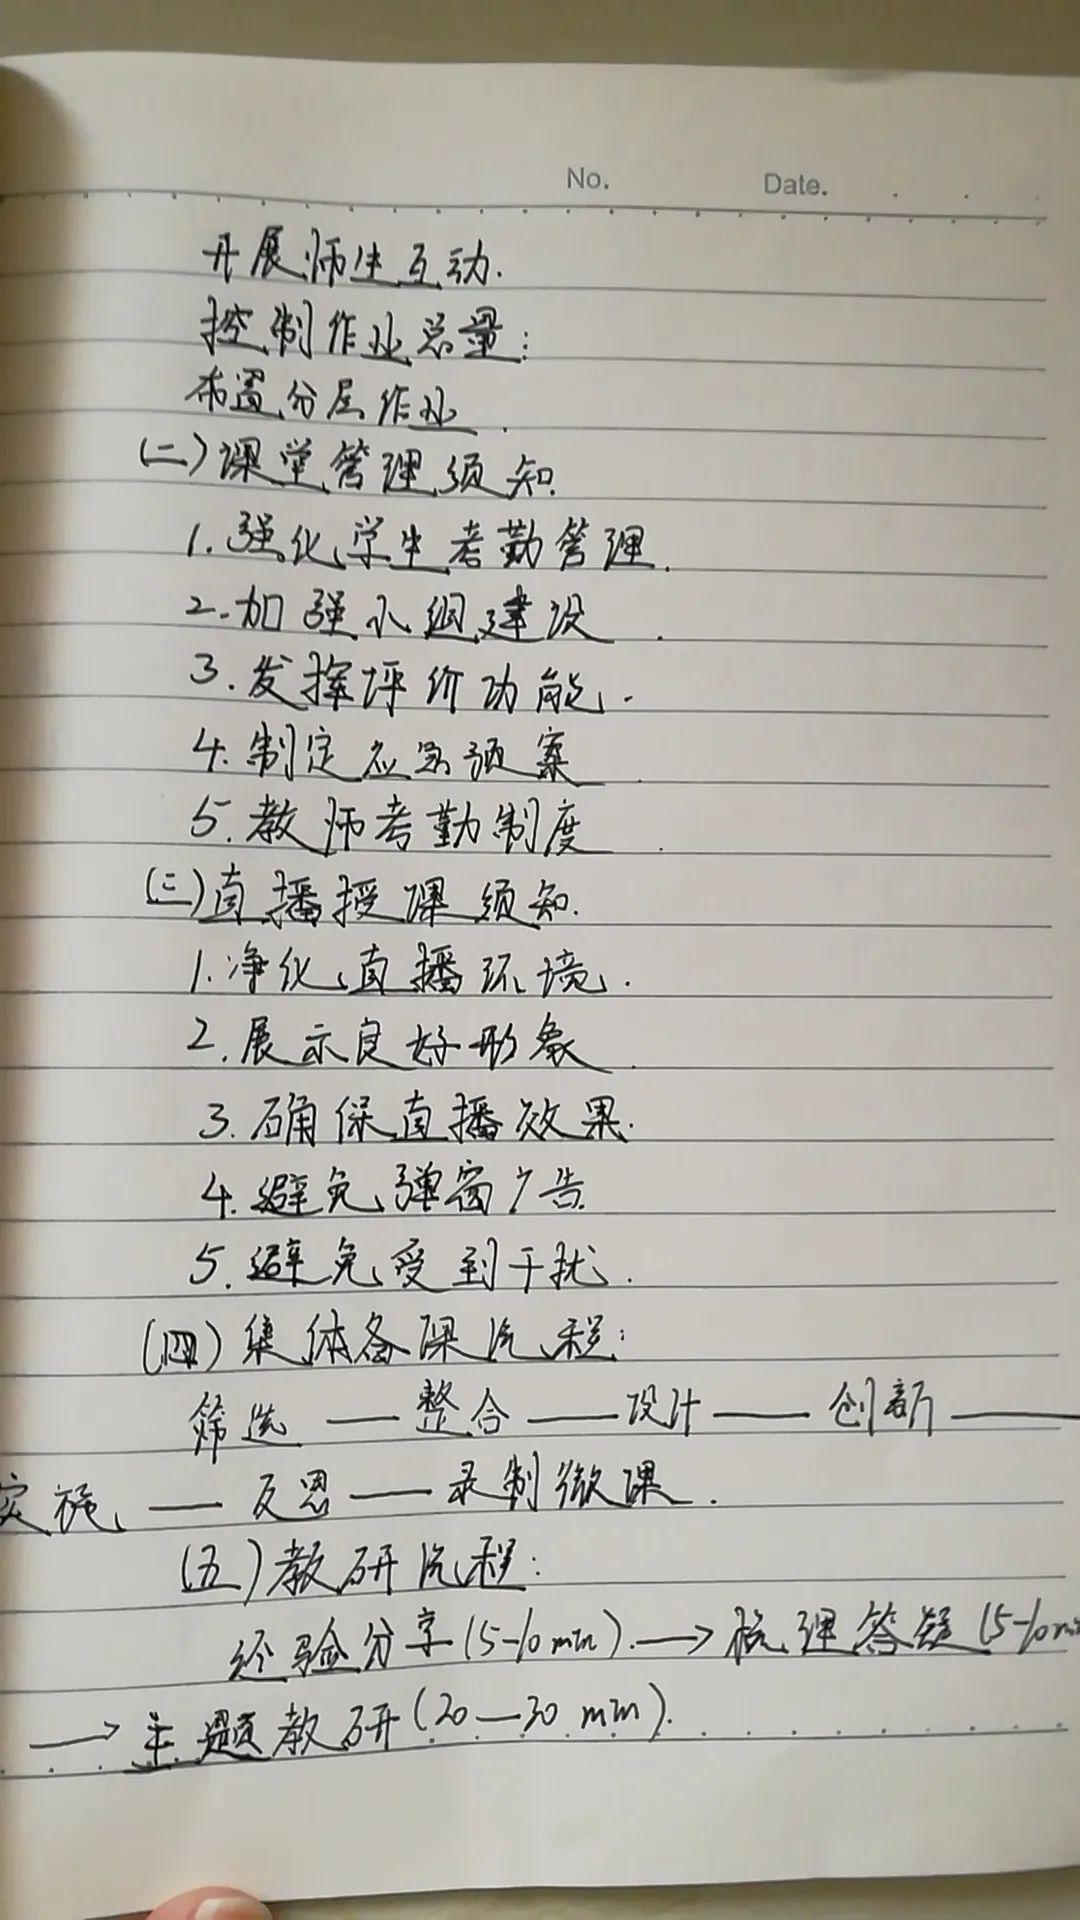 No. Date.
开展师生互动.
控制作业总量:
布置分层作业.
(二)课堂管理须知.
1.强化学生考勤管理.
2.加强小组建设.
3.发挥评价功能.
4.制定应急预案.
5.教师考勤制度.
(三)直播授课须知.
1.净化直播环境.
2.展示良好形象.
3.确保直播效果.
4.避免弹窗广告.
5.避免受到干扰.
(四)集体备课流程:
筛选——整合——设计——创新——
实施——反思——录制微课.
(五)教研流程:
经验分享(5-10min).→梳理答疑(5-10min
→主题教研(20—30 min).